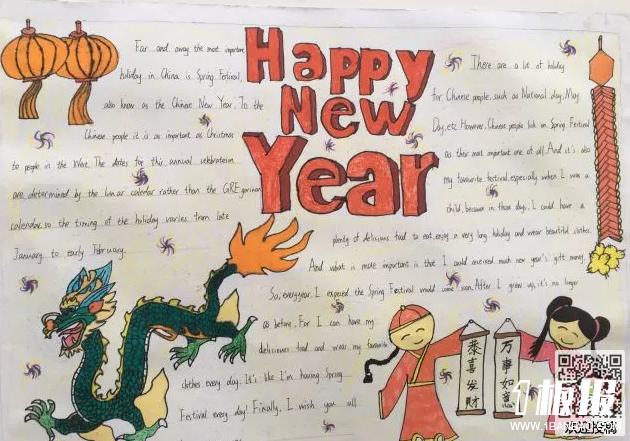 Happy
New
Year
Far and away the most important
holiday in China is Spring Festival,
also know as the Chinese New Year. To the
Chinese people it is as important as Christmas
to people in the West. The dates for this annual celebration
are determined by the lunar calendar rather than the
calendar, so the timing of the holiday varies from late
January to early February.
There are a lot of holiday
for Chinese people, such as National day, May
Day, etc. However, Chinese people look on Spring Festival
as their most important one of all. And it's also
my favourite festival, especially when I was a
child, because in those day, I could have a
plenty of delicious food to eat, enjoy a very long holiday and wear beautiful clothes.
And what is more important is that I could received much new year's gift money.
So, everyyear, I expected the Spring Festival would come soon. After I grew up, it's no longer
as before. For I can have my
delicious food and wear my favourite
clothes every day. It's like I'm having Spring
Festival every day! Finally, I wish you all
恭喜发财
万事如意
1板报
WWW.1BANBAO
欢迎投稿